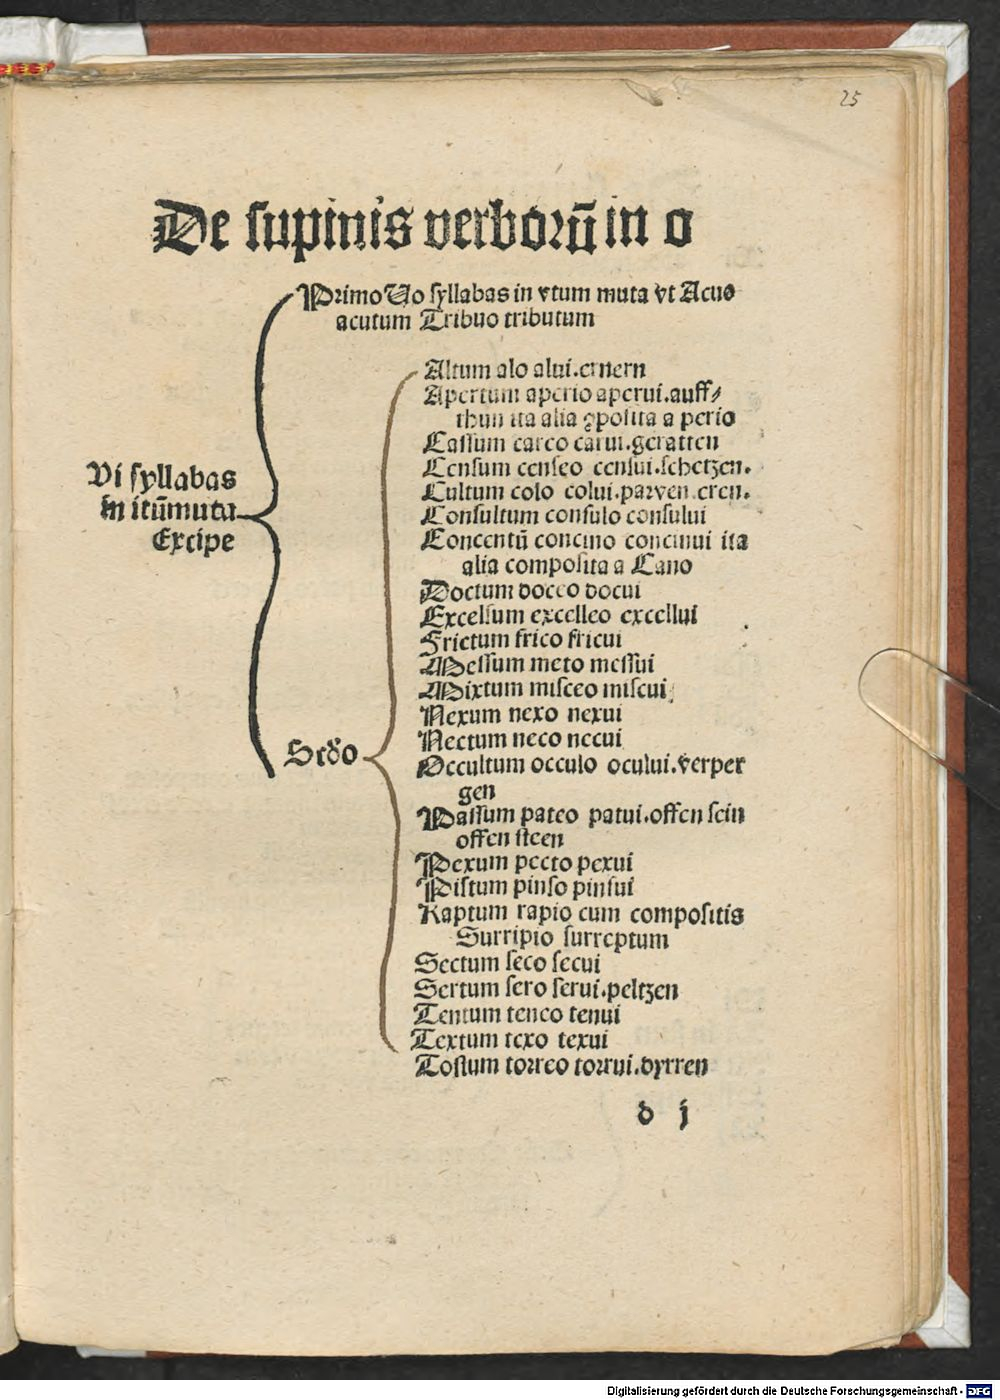 25
De supinis verborū in o
Primo Uo syllabas in vtum muta vt Acuo
acutum Tribuo tributum
Vi syllabas
in itū muta
Excipe
Scd̄o
Altum alo alui. ernern
Apertum aperio aperui. auff⸗
thun ita alia ꝯposita a perio
Cassum careo carui. geratten
Censum censeo censui. schetzen.
Cultum colo colui. parven eren.
Consultum consulo consului
Concentū concino concinui ita
alia composita a Cano
Doctum doceo docui
Excelsum excelleo excellui
Frictum frico fricui
Messum meto messui
Mixtum misceo miscui
Nexum nexo nexui
Nectum neco necui
Occultum occulo ocului. verper
gen
Passum pateo patui. offen sein
offen steen
Pexum pecto pexui
Pistum pinso pinsui
Raptum rapio cum compositis
Surripio surreptum
Sectum seco secui
Sertum sero serui. peltzen
Tentum teneo tenui
Textum texo texui
Tostum torreo torrui. dyrren
d j
Digitalisierung gefördert durch die Deutsche Forschungsgemeinschaft - DFG